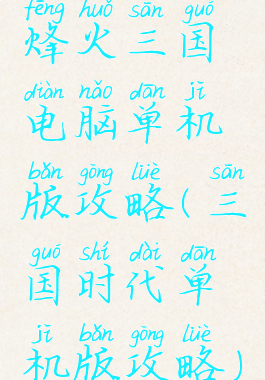 fēng huǒ sān guó
烽火三国
diàn nǎo dān jī
电脑单机
bǎn gōng lüè sān
版攻略(三
guó shí dài dān
国时代单
jī bǎn gōng lüè
机版攻略)